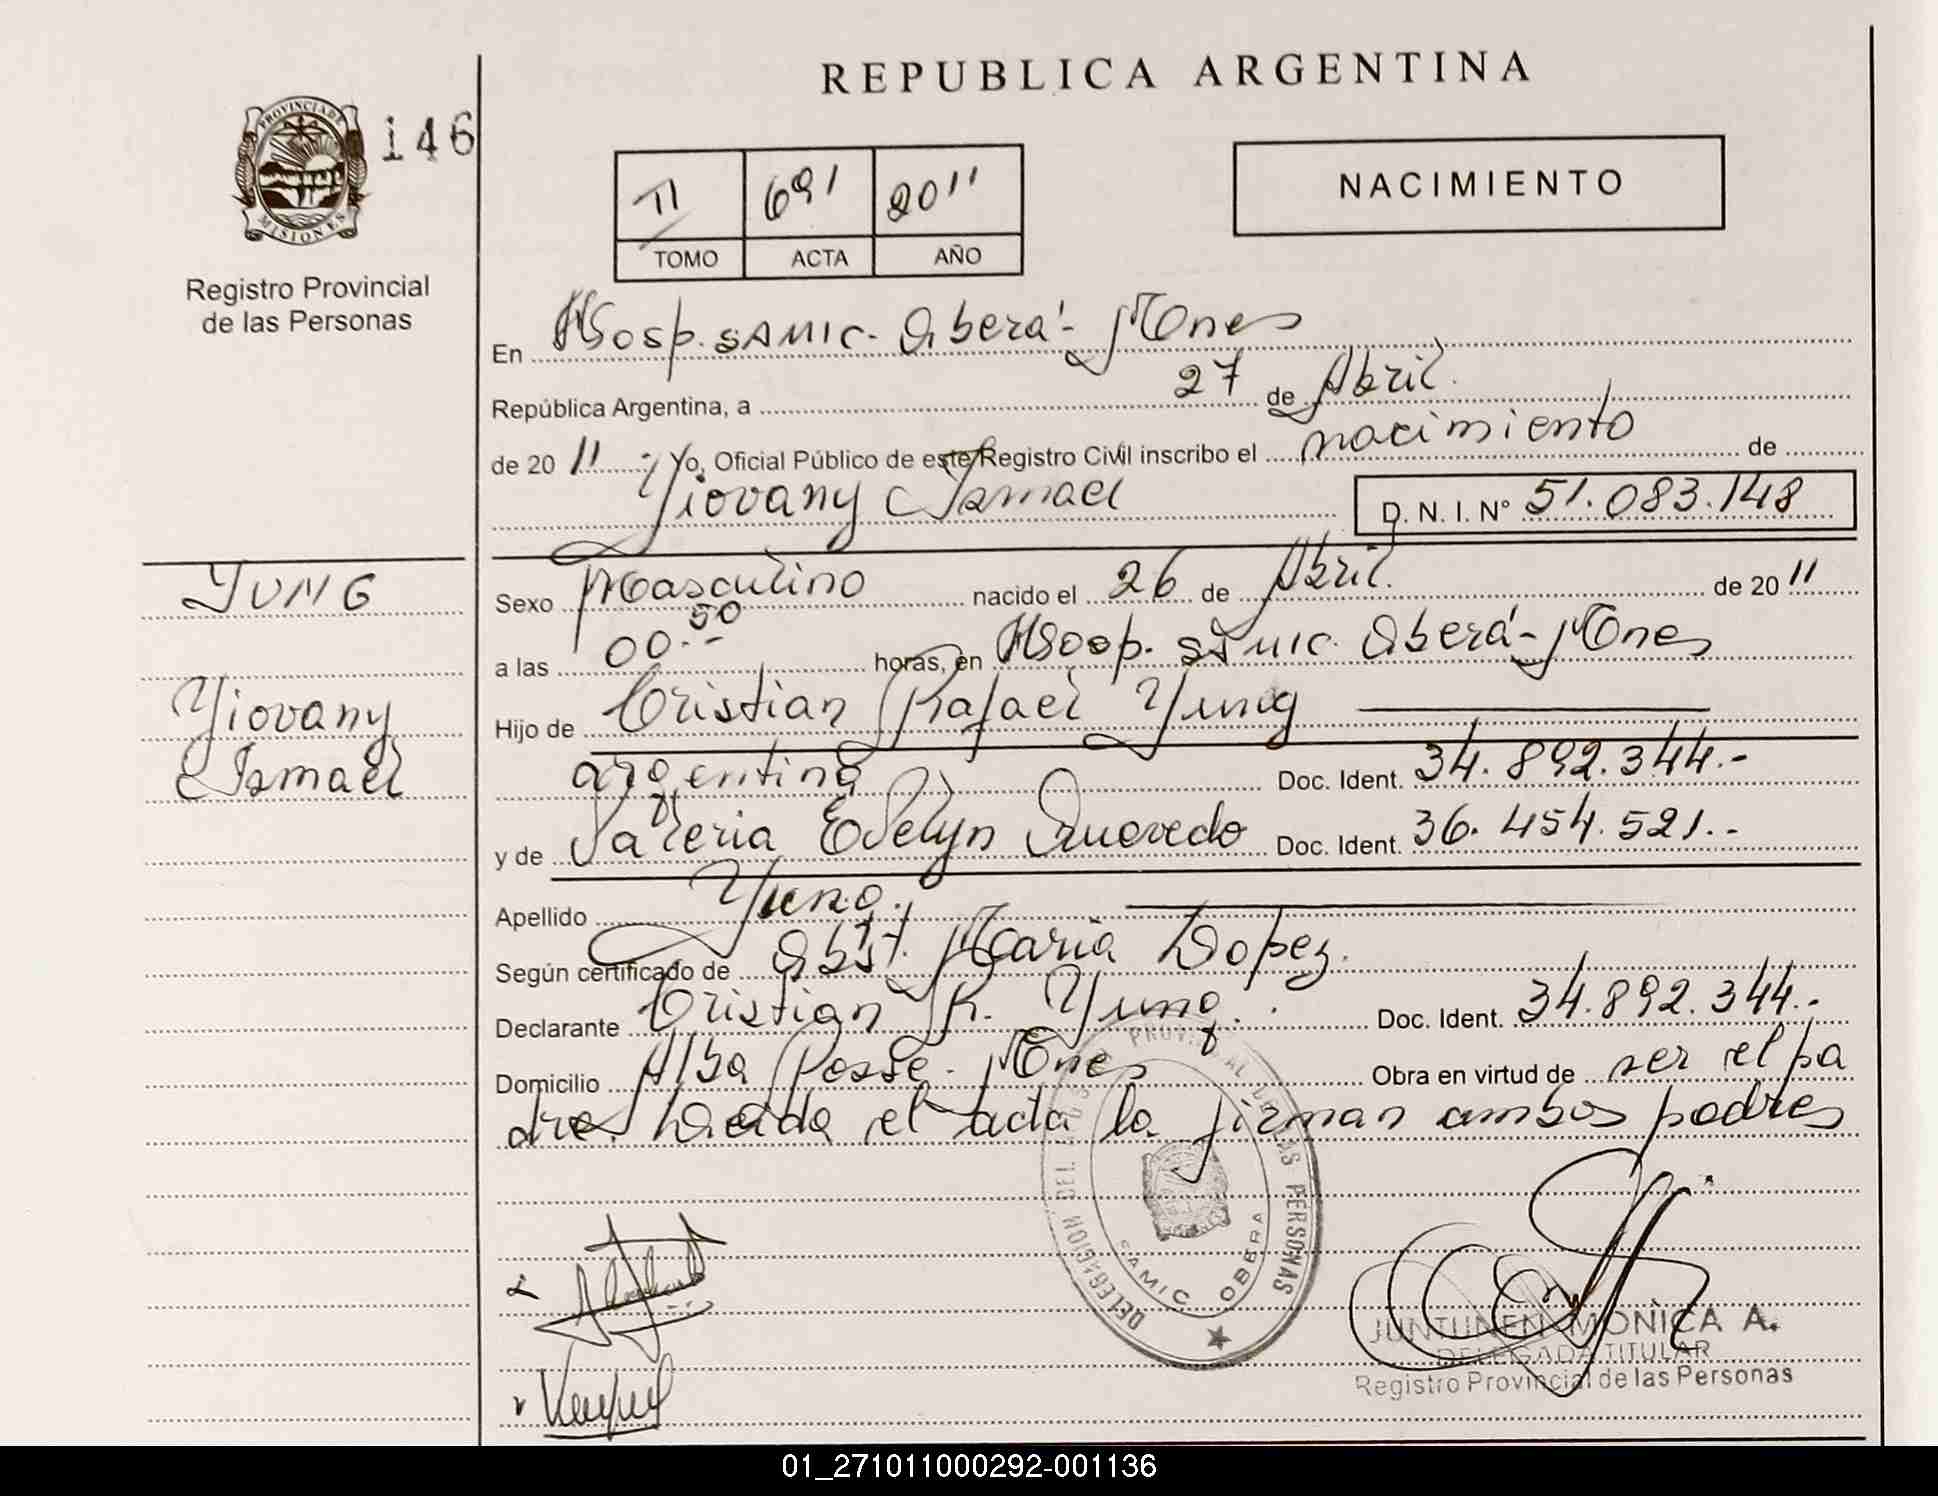 REPUBLICA ARGENTINA
PROVINCIA DE
MISIONES
146
Registro Provincial
de las Personas
II 691 2011
TOMO ACTA AÑO
NACIMIENTO
En Hosp. SAMIC. Oberá - Mnes
República Argentina, a 27 de Abril.
de 20 11 Yo, Oficial Público de este Registro Civil inscribo el nacimiento de
Yiovany Ismael D. N. I. N° 51.083.148
YUNG
Yiovany
Ismael
Sexo Masculino nacido el 26 de Abril. de 20 11
a las 00.50 horas, en Hosp. SAMIC. Oberá - Mnes
Hijo de Cristian Rafael Yung
argentina Doc. Ident. 34.892.344.-
y de Valeria Evelyn Quevedo Doc. Ident. 36.454.521.-
Apellido Yung.
Según certificado de Obst. Maria Lopez.
Declarante Cristian R. Yung. Doc. Ident. 34.892.344.-
Domicilio Alba Posse - Mnes Obra en virtud de ser el pa
dre. Leida el acta la firman ambos padres
DELEGACION DEL PROVINCIAL DE LAS PERSONAS
SAMIC OBERA
JUNTUNEN MONICA A.
DELEGADA TITULAR
Registro Provincial de las Personas
01_271011000292-001136